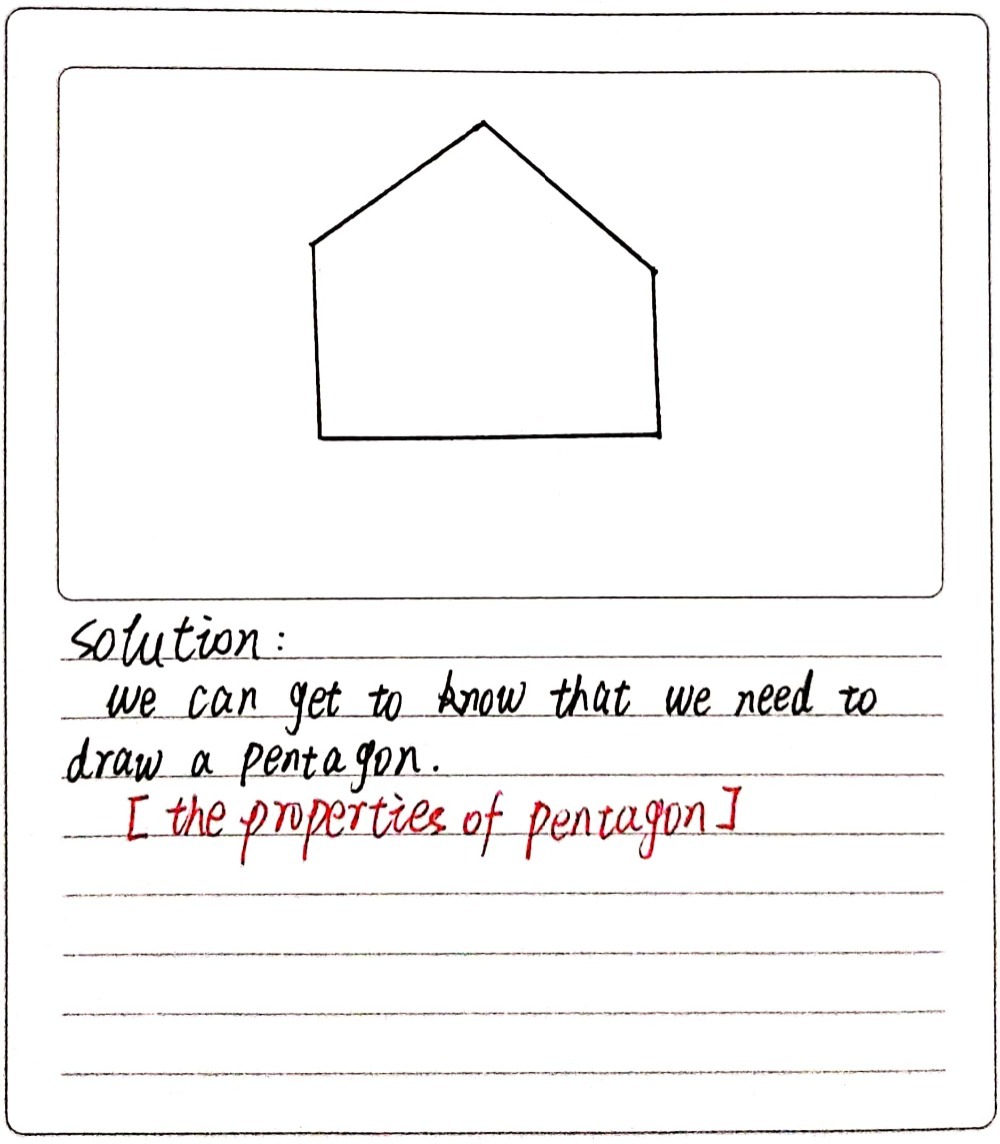 Solution:
we can get to know that we need to
draw a pentagon.
[ the properties of pentagon ]